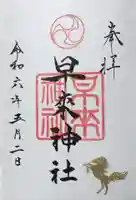 奉拝
早来神社
早来神社
令和六年五月二日